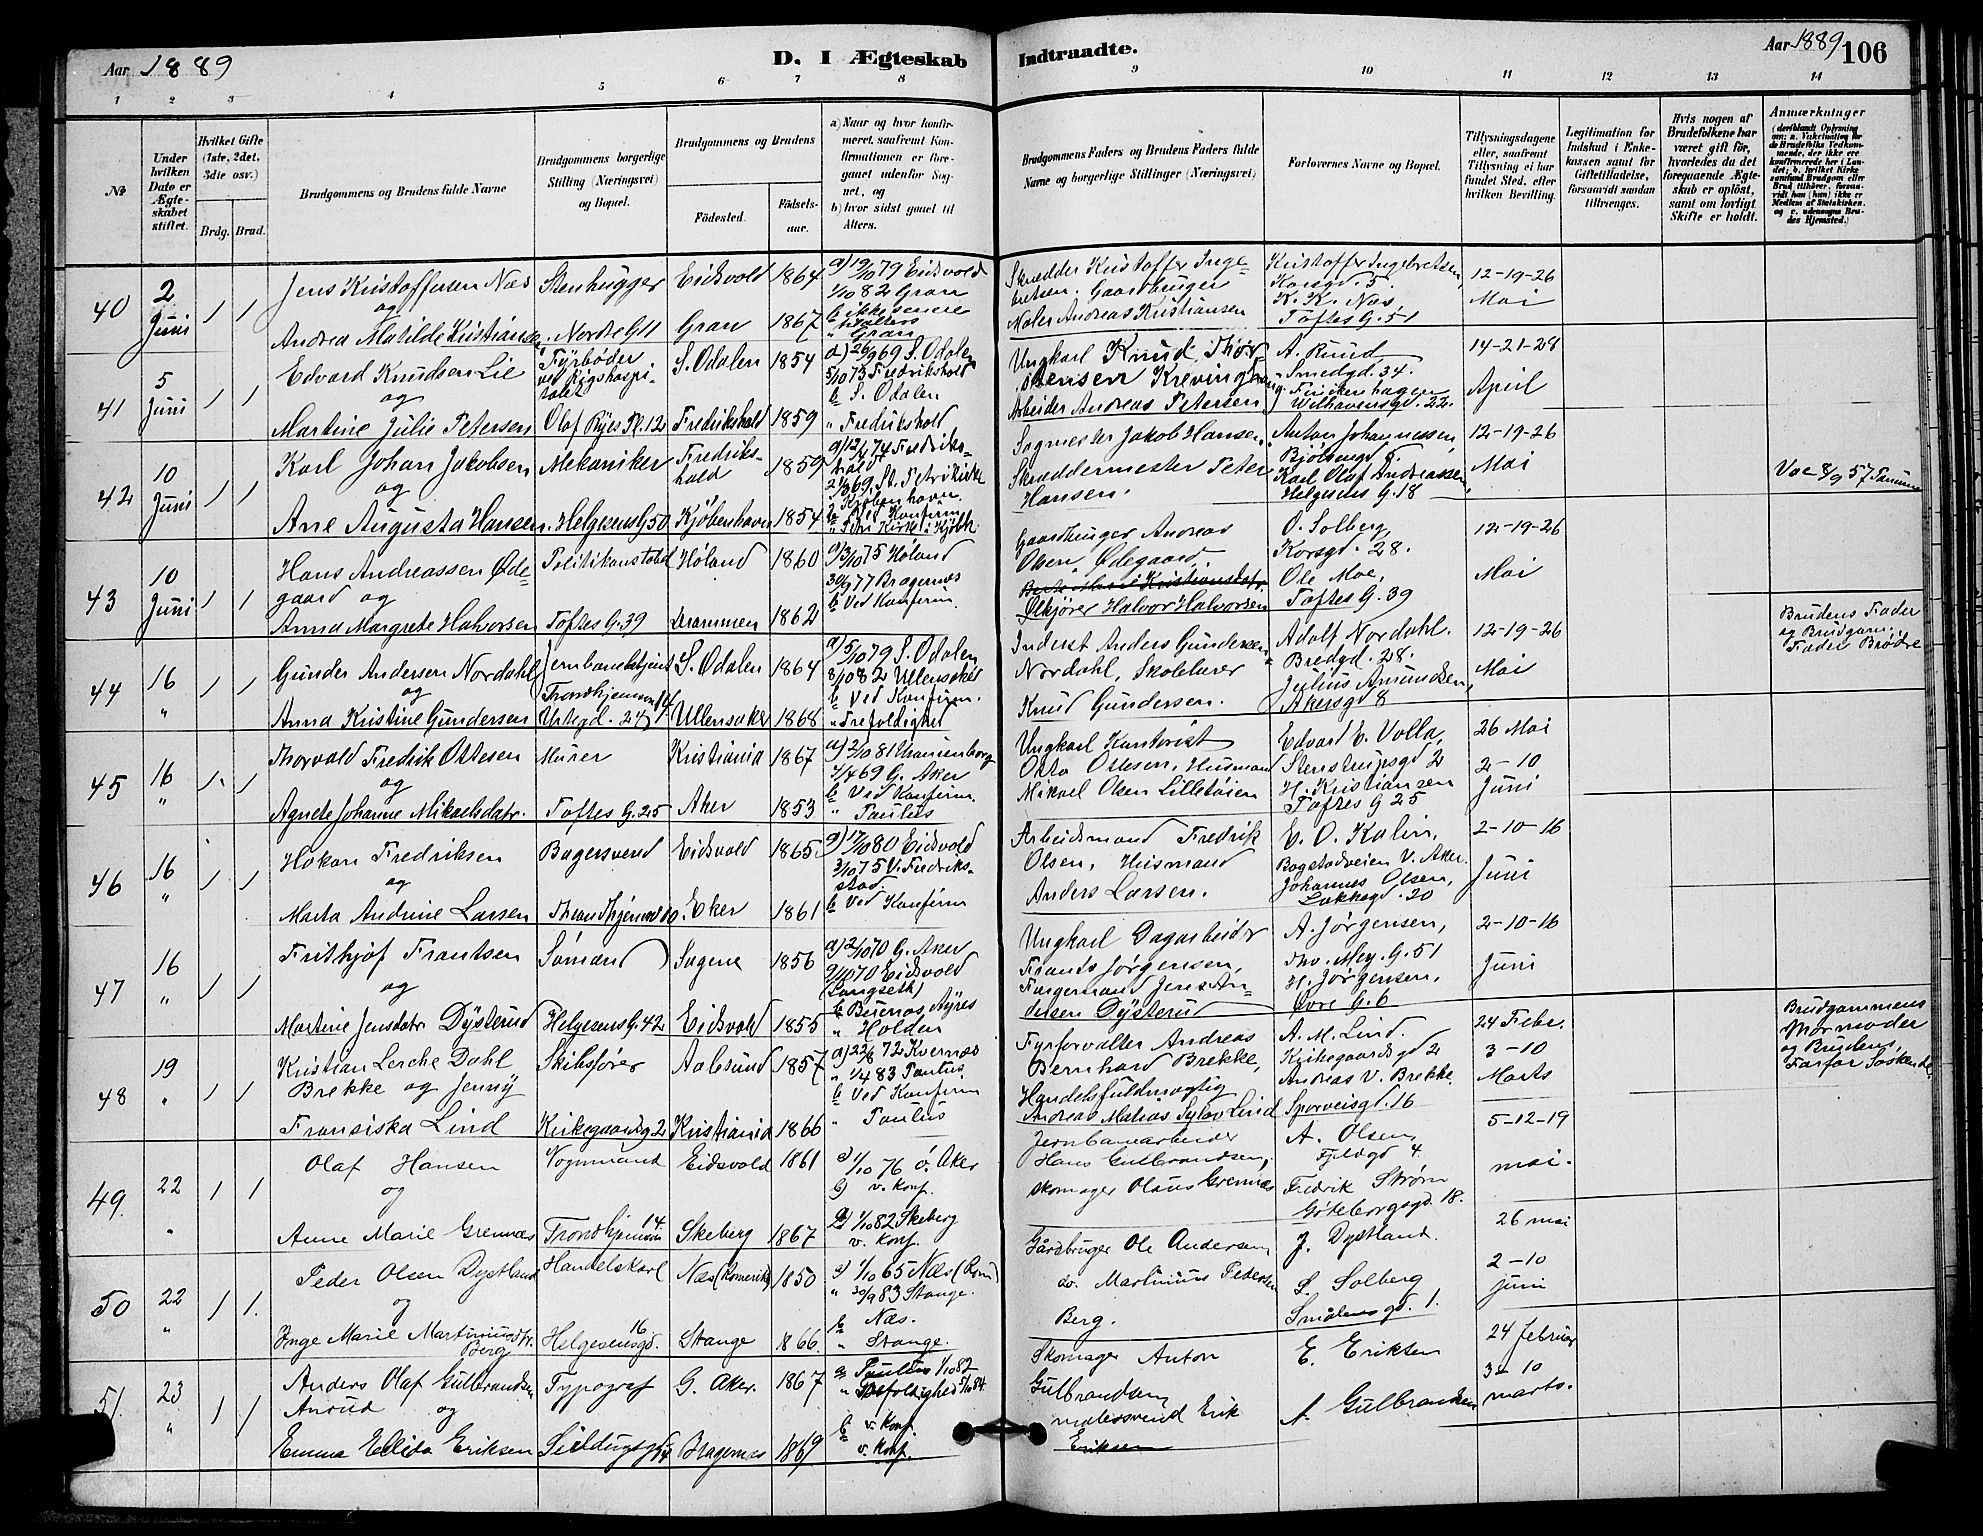 Aar 1889
D. I Ægteskab
Indtraadte.
Aar 1889
106
1 2 3 4 5 6 7 8 9 10 11 12 13 14
No
Under hvilken Dato er Ægteskabet stiftet.
Hvilket Gifte (1ste, 2det, 3die osv.)
Brdg. Brud.
Brudgommens og Brudens fulde Navne
Brudgommens borgerlige Stilling (Næringsvei) og Bopæl.
Brudgommens og Brudens
Födested. Födselsaar.
a) Naar og hvor konfirmeret, saafremt Konfirmationen er foregaaet udenfor Sognet, og
b) hvor sidst gaaet til Alters.
Brudgommens Faders og Brudens Faders fulde Navne og borgerlige Stillinger (Næringsvei)
Forlovernes Navne og Bopæl.
Tillysningsdagene eller, saafremt Tillysning ei har fundet Sted, efter hvilken Bevilling.
Legitimation for Indskud i Enkekassen samt for Giftetilladelse, forsaavidt saadan tiltrænges.
Hvis nogen af Brudefolkene har været gift för, hvorledes da det foregaaende Ægteskab er oplöst, samt om lovligt Skifte er holdt.
Anmærkninger
40
2 Juni
1 1
Jens Kristoffersen Næs
og
Andrea Matilde Kristiansen
Stenhugger
Nordre G 11
Eidsvold 1864
Gran 1867
a) 19/10 79 Eidsvold
1/10 82 Gran
b ikke senere
" Gran
Skrædder Kristoffer Ingebretsen. Gaardbruger
Maler Andreas Kristiansen
Kristoffer Ingebretsen,
Korsgd. 5.
K. K. Næs,
Toftes G. 51
12-19-26
Mai
41
5 Juni
1 1
Edvard Knudsen Lie
og
Martine Julie Petersen
Fyrbøder
ved Rigshospitalet
Olaf Ryes Pl. 12
S. Odalen 1854
Fredrikshald 1859
a) 26/9 69 S. Odalen
5/10 73 Fredrikshald
b S. Odalen
" Fredrikshald
Ungkarl Knud Thorstensen
Arbeider Andreas Petersen
A. Ruud
Smedgd. 34.
Wilhavensgd. 22.
14-21-28
April
42
10 Juni
1 1
Karl Johan Jakobsen
og
Ane Augusta Hansen
Mekaniker
Helgesens G 50
Fredrikshald 1859
Kjøbenhavn 1854
Sagmester Jakob Hansen
Skræddermester Peter
Hansen.
Anton Johannessen,
Bjølsengd 5.
Karl Olaf Andreassen,
Helgesens G. 18
12-19-26
Mai
Vac 8/9 57
43
10 Juni
1 1
Hans Andreassen Ødegaard og
Anna Margrete Halvorsen
Politikonstabel
Toftes G. 39
Høland 1860
Drammen 1862
a) 3/10 75 Høland
30/9 77 Bragernes
b Ved Konfirm.
Gaardbruger Andreas
Olsen Ødegaard,
Ølkjører Halvor Halvorsen
O. Solberg
Korsgd. 28.
Ole Moe,
Toftes G. 39
12-19-26
Mai
44
16 "
1 1
Gunder Andersen Nordahl
og
Anna Kristine Gundersen
Jernbanebetjent
Urtegd. 24
S. Odalen 1864
Ullensaker 1868
a) 5/10 79 S. Odalen
8/10 82 Ullensaker
b Ved Konfirm.
" Trefoldighed
Inderst Anders Gundersen
Nordahl, Skolelærer
Knud Gundersen.
Adolf Nordahl.
Bredgd. 28.
Julius Amundsen,
Akersgd 8
12-19-26
Mai
Brudens Fader
og Brudgom.
Fader Brødre
45
16 "
1 1
Thorvald Fredrik Ottesen
og
Agnete Johanne Mikaelsdatr.
Murer
Toftes G. 25
Kristiania 1867
Aker 1853
a) 2/10 81 Uranienborg
4/4 69 G. Aker
b Ved Konfirm.
" Paulus
Ungkarl Kontorist
Otto Ottesen, Husmand
Mikael Olsen Lilletøien
Edvard E. Volla,
Stenstrupsgd 2
H. Kristiansen
Toftes G 25
26 Mai
2-10
Juni
46
16 "
1 1
Hakon Fredriksen
og
Marta Andrine Larsen
Bagersvend
Eidsvold 1865
Eker 1861
a) 17/10 80 Eidsvold
3/10 75 V. Fredriksstad
b Ved Konfirm
Arbeidsmand Fredrik
Olsen, Husmand
Anders Larsen.
E. O. Kalin,
Bogstadveien V. Aker.
Johannes Olsen,
Løkkegd. 20
2-10-16
Juni
47
16 "
1 1
Frithjof Frantsen
og
Martine Jensdatr Dysterud
Sømand
Helgesens G. 42
Sagene 1856
Eidsvold 1855
a) 2/10 70 G. Aker
9/10 70 Eidsvold
(Langseth)
b Buenos Ayres
" Holden
Ungkarl Dagarbeider
Frants Jørgensen,
Jens Andersen Dysterud
A. Jørgensen,
Thv. Mey. G. 51
H. Jørgensen,
Øvre G. 6
2-10-16
Juni
48
19 "
1 1
Kristian Lerche Dahl
Brekke og Jenny
Fransiska Lind
Skibsfører
Kirkegaardsg 2
Aalesund 1857
Kristiania 1866
a) 22/6 72 Kvernæs
" 1/4 83 Paulus
b Ved Konfirm
" Paulus
Fyrforvalter Andreas
Bernhard Brekke,
Handelsfuldmægtig
Andreas Matias Sylow Lind
A. M. Lind.
Kirkegaardsgd 2
Andreas V. Brekke
Sporveisgd. 16
24 Febr.
3-10
Marts
Brudgommens
Mormoder
og Brudens
Farfar Søskende
49.
22 "
1 1
Olaf Hansen
og
Anne Marie Grennæs
Vognmand
Trondhjemsvn 14.
Eidsvold 1861
Skeberg 1867
a) 1/10 76 ø. Aker
b) v. Konf.
a) 1/10 82 Skeberg
v. Konf.
Jernbanearbeider
Hans Gulbrandsen,
Skomager Olaus Grennæs
A. Olsen
Fjeldgd 4.
Fredrik Strøm
Göteborgsgd. 18.
5-12-19
mai.
50
22 "
1 1.
Peder Olsen Dystland
og
Inge Marie Martinusdtr.
Berg
Handelskarl
Helgesensgd. 16
Næs (Romerike) 1850
Stange 1866
a) 1/10 65 Næs (Rom)
" 30/9 83 Stange.
b Næs.
" Stange.
Gårdbruger Ole Andersen
do. Martinius Pedersen
Berg.
J. Dystland.
L. Solberg
Smålensgd. 1.
26 mai
2-10
juni
51.
23 "
1 1
Anders Olaf Gulbrandsen
Anrud og
Emma Elida Eriksen
Typograf
G. Aker. 1867
Bragernæs 1869
a Paulus 1/10 82
b v. Konf.
v. Konf.
Skomager Anton
Gulbrandsen
malersvend Erik
Eriksen
E. Eriksen
A. Gulbrandsen
24 februar
3-10
marts.